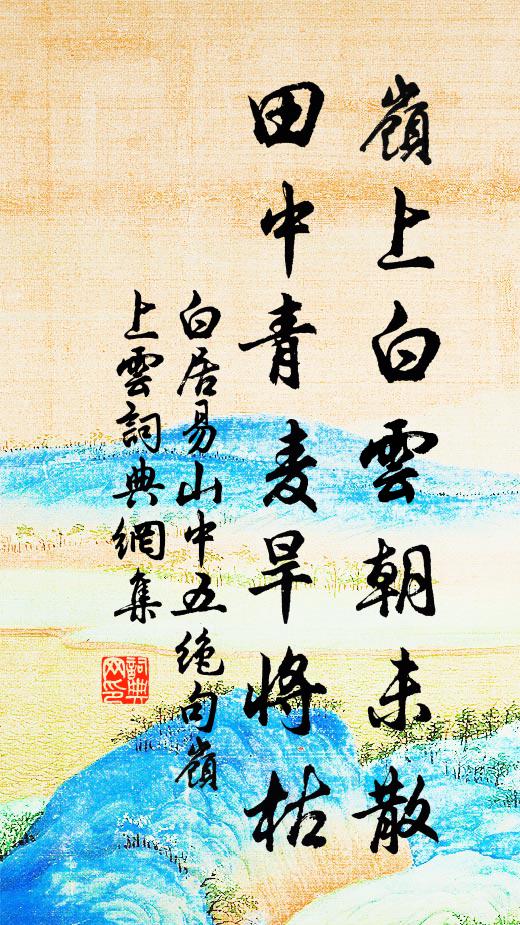 嶺上白雲朝未散
田中青麦旱將枯
白居易山中五絶句嶺
上雲詞典網集
詞典
网印